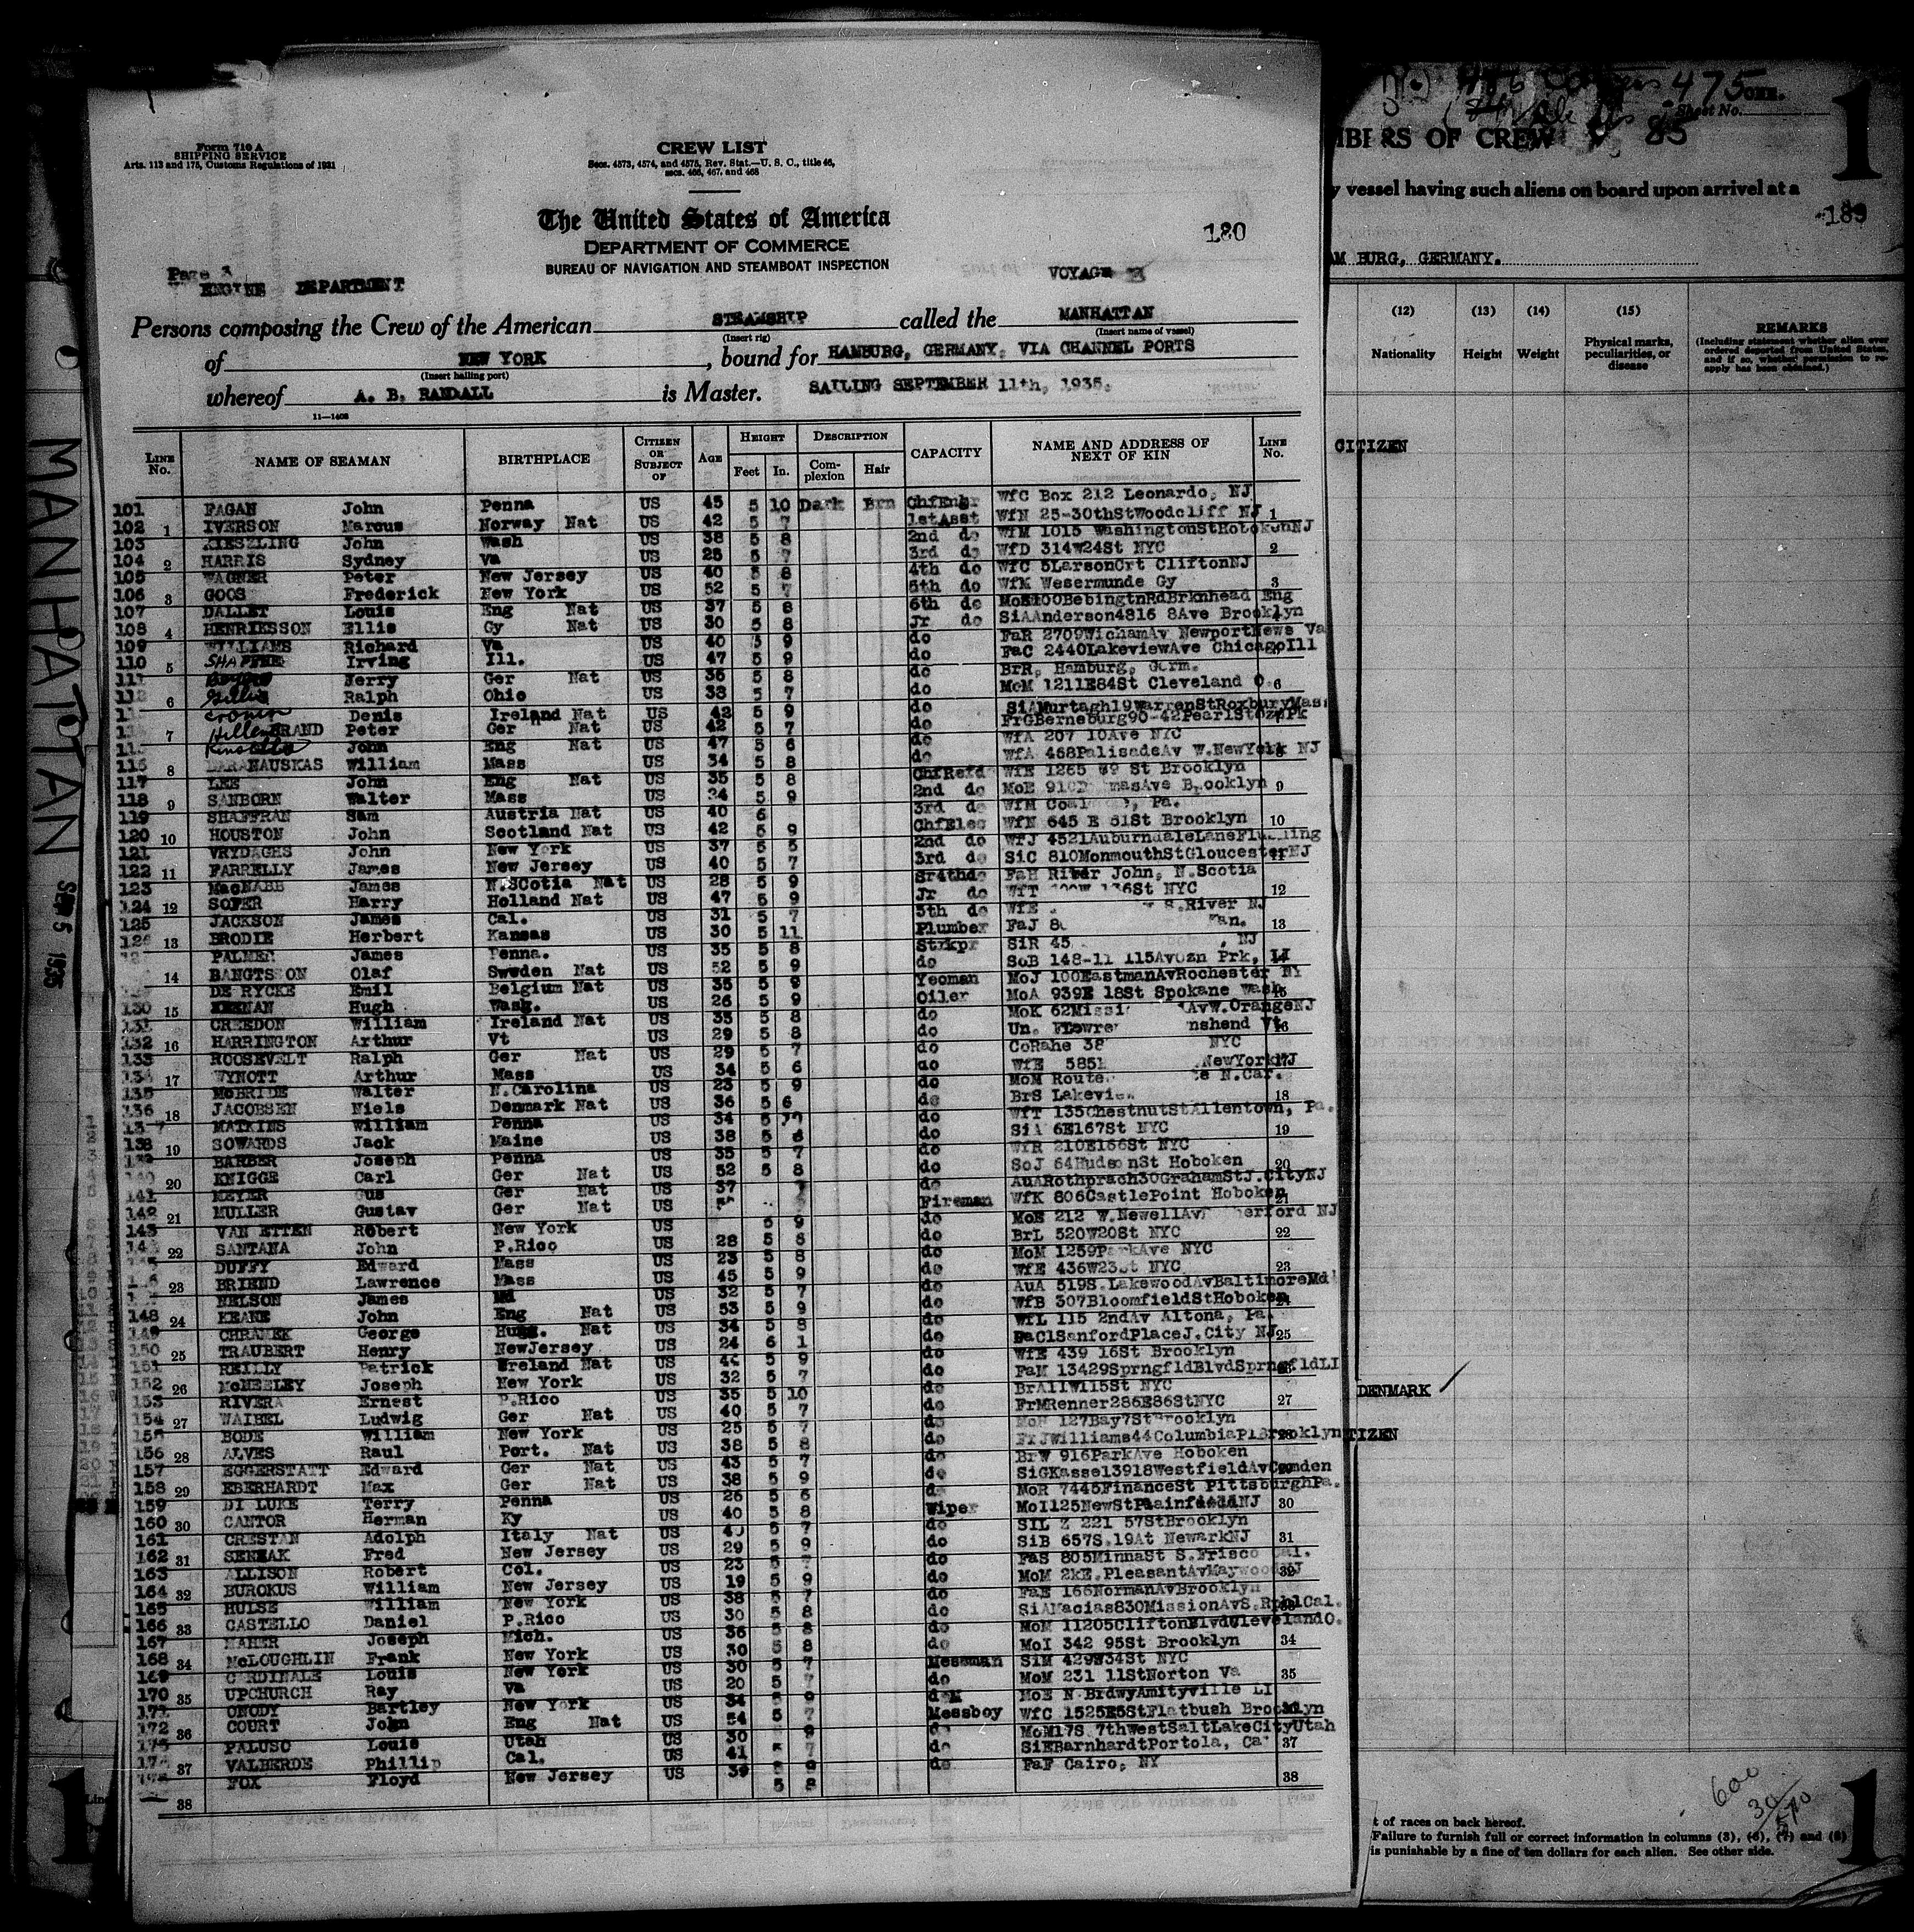 Form 710 A
SHIPPING SERVICE
Arts. 113 and 175, Customs Regulations of 1931
CREW LIST
Secs. 4573, 4574, and 4575, Rev. Stat.—U. S. C., title 46,
secs. 466, 467, and 468
The United States of America
DEPARTMENT OF COMMERCE
BUREAU OF NAVIGATION AND STEAMBOAT INSPECTION
180
Page 3
ENGINE DEPARTMENT
VOYAGE
Persons composing the Crew of the American STEAMSHIP called the MANHATTAN
(Insert rig) (Insert name of vessel)
of NEW YORK, bound for HAMBURG, GERMANY, VIA CHANNEL PORTS
(Insert hailing port)
whereof A. B. RANDALL is Master. SAILING SEPTEMBER 11th, 1935.
11—1408
LINE No. NAME OF SEAMAN BIRTHPLACE CITIZEN OR SUBJECT OF AGE HEIGHT Feet In. DESCRIPTION Complexion Hair CAPACITY NAME AND ADDRESS OF NEXT OF KIN LINE No.
101 FAGAN John Penna US 45 5 10 Dark Brn ChfEngr WfC Box 212 Leonardo, NJ
102 1 IVERSON Marcus Norway Nat US 42 5 7 1stAsst WfN 25-30thStWoodcliff NJ 1
103 KIESZLING John Wash US 38 5 8 2nd do WfM 1015 WashingtonStHobokenNJ
104 2 HARRIS Sydney Va US 25 5 7 3rd do WfD 314W24St NYC 2
105 WAGNER Peter New Jersey US 40 5 8 4th do WfC 5LarsonCrt CliftonNJ
106 3 GOOS Frederick New York US 52 5 7 5th do WfK Wesermunde Gy 3
107 DALLET Louis Eng Nat US 37 5 8 6th do MoE100BebingtnRdBrknhead Eng
108 4 HENRIKSSON Ellis Gy Nat US 30 5 8 Jr do SiAAnderson4816 8Ave Brooklyn
109 WILLIAMS Richard Va US 40 5 9 do FaR 2709WichamAv NewportNews Va
110 5 Irving Ill. US 47 5 9 do FaC 2440LakeviewAve ChicagoIll
111 Jerry Ger Nat US 36 5 8 do BrR, Hamburg, Germ.
6 Gillis Ralph Ohio US 38 5 7 do MoM 1211E84St Cleveland O. 6
Cronin Denis Ireland Nat US 42 5 9 do SiAMurtagh19WarrenStRoxburyMass
7 HilleBRAND Peter Ger Nat US 42 5 7 do FrGBerneburg90-42PearlStOznPk
115 Kinsella John Eng Nat US 47 5 6 do WfA 207 10Ave NYC
116 8 BARANAUSKAS William Mass US 34 5 8 do WfA 468PalisadeAv W.NewYork NJ
117 LEE John Eng Nat US 35 5 8 ChfRefd WfE 1265 69 St Brooklyn
118 9 SANBORN Walter Mass US 24 5 9 2nd do Brooklyn 9
119 SHAFFRAN Sam Austria Nat US 40 6 3rd do Pa.
120 10 HOUSTON John Scotland Nat US 42 5 9 ChfElec WfN 645 E 81St Brooklyn 10
121 VRYDAGHS John New York US 37 5 5 2nd do WfJ 4521AuburndaleLaneFlushing
122 11 FARRELLY James New Jersey US 40 5 7 3rd do SiC 810MonmouthStGloucesterNJ
123 MacNABB James N.SCotia Nat US 28 5 9 Sr4thdo FaH River John, N.Scotia
124 12 SOFER Harry Holland Nat US 47 5 9 Jr do WfT 136St NYC 12
125 JACKSON James Cal. US 31 5 7 5th do WfE S.River NJ
126 13 BRODIE Herbert Kansas US 30 5 11 Plumber FaJ 13
PALMER James Penna. US 35 5 8 Strkpr SiR 45 NJ
14 BANGTSSON Olaf Sweden Nat US 52 5 9 do SoB 148-11 115AvOzn Prk, LI
DE RYCKE Emil Belgium Nat US 35 5 9 Yeoman MoJ 100EastmanAvRochester NY
130 15 KEENAN Hugh Wash. US 26 5 9 Oiler MoA 939E 18St Spokane Wash
131 CREEDON William Ireland Nat US 35 5 8 do MoK W.OrangeNJ
132 16 HARRINGTON Arthur Vt US 29 5 8 do Un. Vt
133 ROOSEVELT Ralph Ger Nat US 29 5 7 do CoRahe 38 NYC
134 17 WYNOTT Arthur Mass US 34 5 6 do WfE 585 NewYorkNJ
135 McBRIDE Walter N.Carolina US 23 5 9 do MoM Route N.Car.
136 18 JACOBSEN Niels Denmark Nat US 36 5 6 do BrS 18
137 MATKINS William Penna US 34 5 do WfT 135ChestnutStAllentown, Pa.
138 19 SOWARDS Jack Maine US 38 5 8 do SiA 6E167St NYC 19
139 BARBER Joseph Penna US 35 5 7 do WfR 210E166St NYC
140 20 KNIGGE Carl Ger Nat US 52 5 8 do SoJ 64HudsonSt Hoboken 20
141 MEYER Gus Ger Nat US 37 do AuARothprach30GrahamStJ.CityNJ
142 21 MULLER Gustav Ger Nat US Fireman WfK 806CastlePoint Hoboken 21
143 VAN ETTEN Robert New York US 5 9 do MoE 212 W.NewellAv NJ
22 SANTANA John P.Rico US 28 5 8 do BrL 520W20St NYC 22
DUFFY Edward Mass US 23 5 8 do MoM 1259ParkAve NYC
23 BRIEND Lawrence Mass US 45 5 9 do WfE 436W23St NYC 23
NELSON James Md US 32 5 7 do AuA 519S.LakewoodAvBaltimoreMd
148 24 KEANE John Eng Nat US 53 5 9 do WfB 307BloomfieldStHoboken 24
149 CHRAMEK George Hung. Nat US 34 5 8 do WfL 115 2ndAv Altona, Pa.
150 25 TRAUBERT Henry NewJersey US 24 6 1 do FaClSanfordPlaceJ.City NJ 25
151 REILLY Patrick Ireland Nat US 5 9 do WfE 439 16St Brooklyn
152 26 McNEELEY Joseph New York US 32 5 7 do FaM 13429SprngfldBlvdSprngfldLI
153 RIVERA Ernest P.Rico US 35 5 10 do BrA11W115St NYC
154 27 WAIBEL Ludwig Ger Nat US 40 5 7 do FrMRenner286E86StNYC 27
155 BODE William New York US 25 5 7 do MoH 127Bay7StBrooklyn
156 28 ALVES Raul Port. Nat US 38 5 8 do FrJWilliams44ColumbiaPlBrooklyn
157 EGGERSTATT Edward Ger Nat US 43 5 7 do BrW 916ParkAve Hoboken
158 29 EBERHARDT Max Ger Nat US 38 5 9 do SiGKassel3918WestfieldAvCamden
159 DI LUKE Terry Penna US 26 5 6 do MoR 7445FinanceSt PittsburghPa.
160 30 CANTOR Herman Ky US 40 5 8 Wiper MoI125NewStPlainfieldNJ 30
161 CRESTAN Adolph Italy Nat US 5 7 do SIL 221 57StBrooklyn
162 31 SENZAK Fred New Jersey US 29 5 9 do SiB 657S.19At NewarkNJ 31
163 ALLISON Robert Col. US 23 5 7 do FaS 805MinnaSt S.Frisco Cal.
164 32 BUROKUS William New Jersey US 19 5 9 do MoM 2kE.PleasantAvMaywoodNJ
165 HULSE William New York US 38 5 7 do FaE 166NormanAvBrooklyn
166 33 CASTELLO Daniel P.Rico US 30 5 8 do SiAMacias830MissionAvS.RphlCal.
167 MAHER Joseph Mich. US 36 5 8 do MoM 11205CliftonBlvdClevelandO.
168 34 McLOUGHLIN Frank New York US 30 5 8 do MoI 342 95St Brooklyn 34
169 CARDINALE Louis New York US 30 5 7 Messman SiM 429W34St NYC
170 35 UPCHURCH Ray Va US 20 5 7 do MoM 231 11StNorton Va 35
171 ONODY Bartley New York US 34 5 9 do MoE N.BrdwyAmityville LI
172 36 COURT John Eng Nat US 54 5 7 Messboy WfC 1525E5StFlatbush Brooklyn
173 PALUSO Louis Utah US 30 9 do MoM17S.7thWestSaltLakeCityUtah
174 37 VALBERDE Phillip Cal. US 41 5 7 do SiEBarnhardtPortola, Ca 37
FOX Floyd New Jersey US 39 5 8 do FaF Cairo, NY
38 38
MANHATTAN
SEP 5 1935
475
Sheet No. ONE.
MBERS OF CREW 85
1
y vessel having such aliens on board upon arrival at a
189
BURG, GERMANY.
(12) (13) (14) (15)
Nationality Height Weight Physical marks, peculiarities, or disease REMARKS
(Including statement whether alien ever ordered deported from United States, and if so, whether permission to reapply has been obtained.)
CITIZEN
DENMARK
TIZEN
600
30
570
t of races on back hereof.
Failure to furnish full or correct information in columns (3), (6), (7) and (8)
is punishable by a fine of ten dollars for each alien. See other side.
1
1